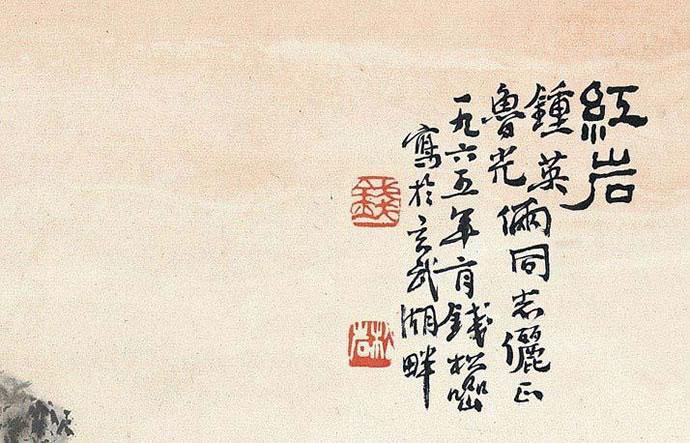 紅岩
鍾英
魯光
倆同志儷正
一九六五年 月錢松喦
寫於玄武湖畔
錢
松岩